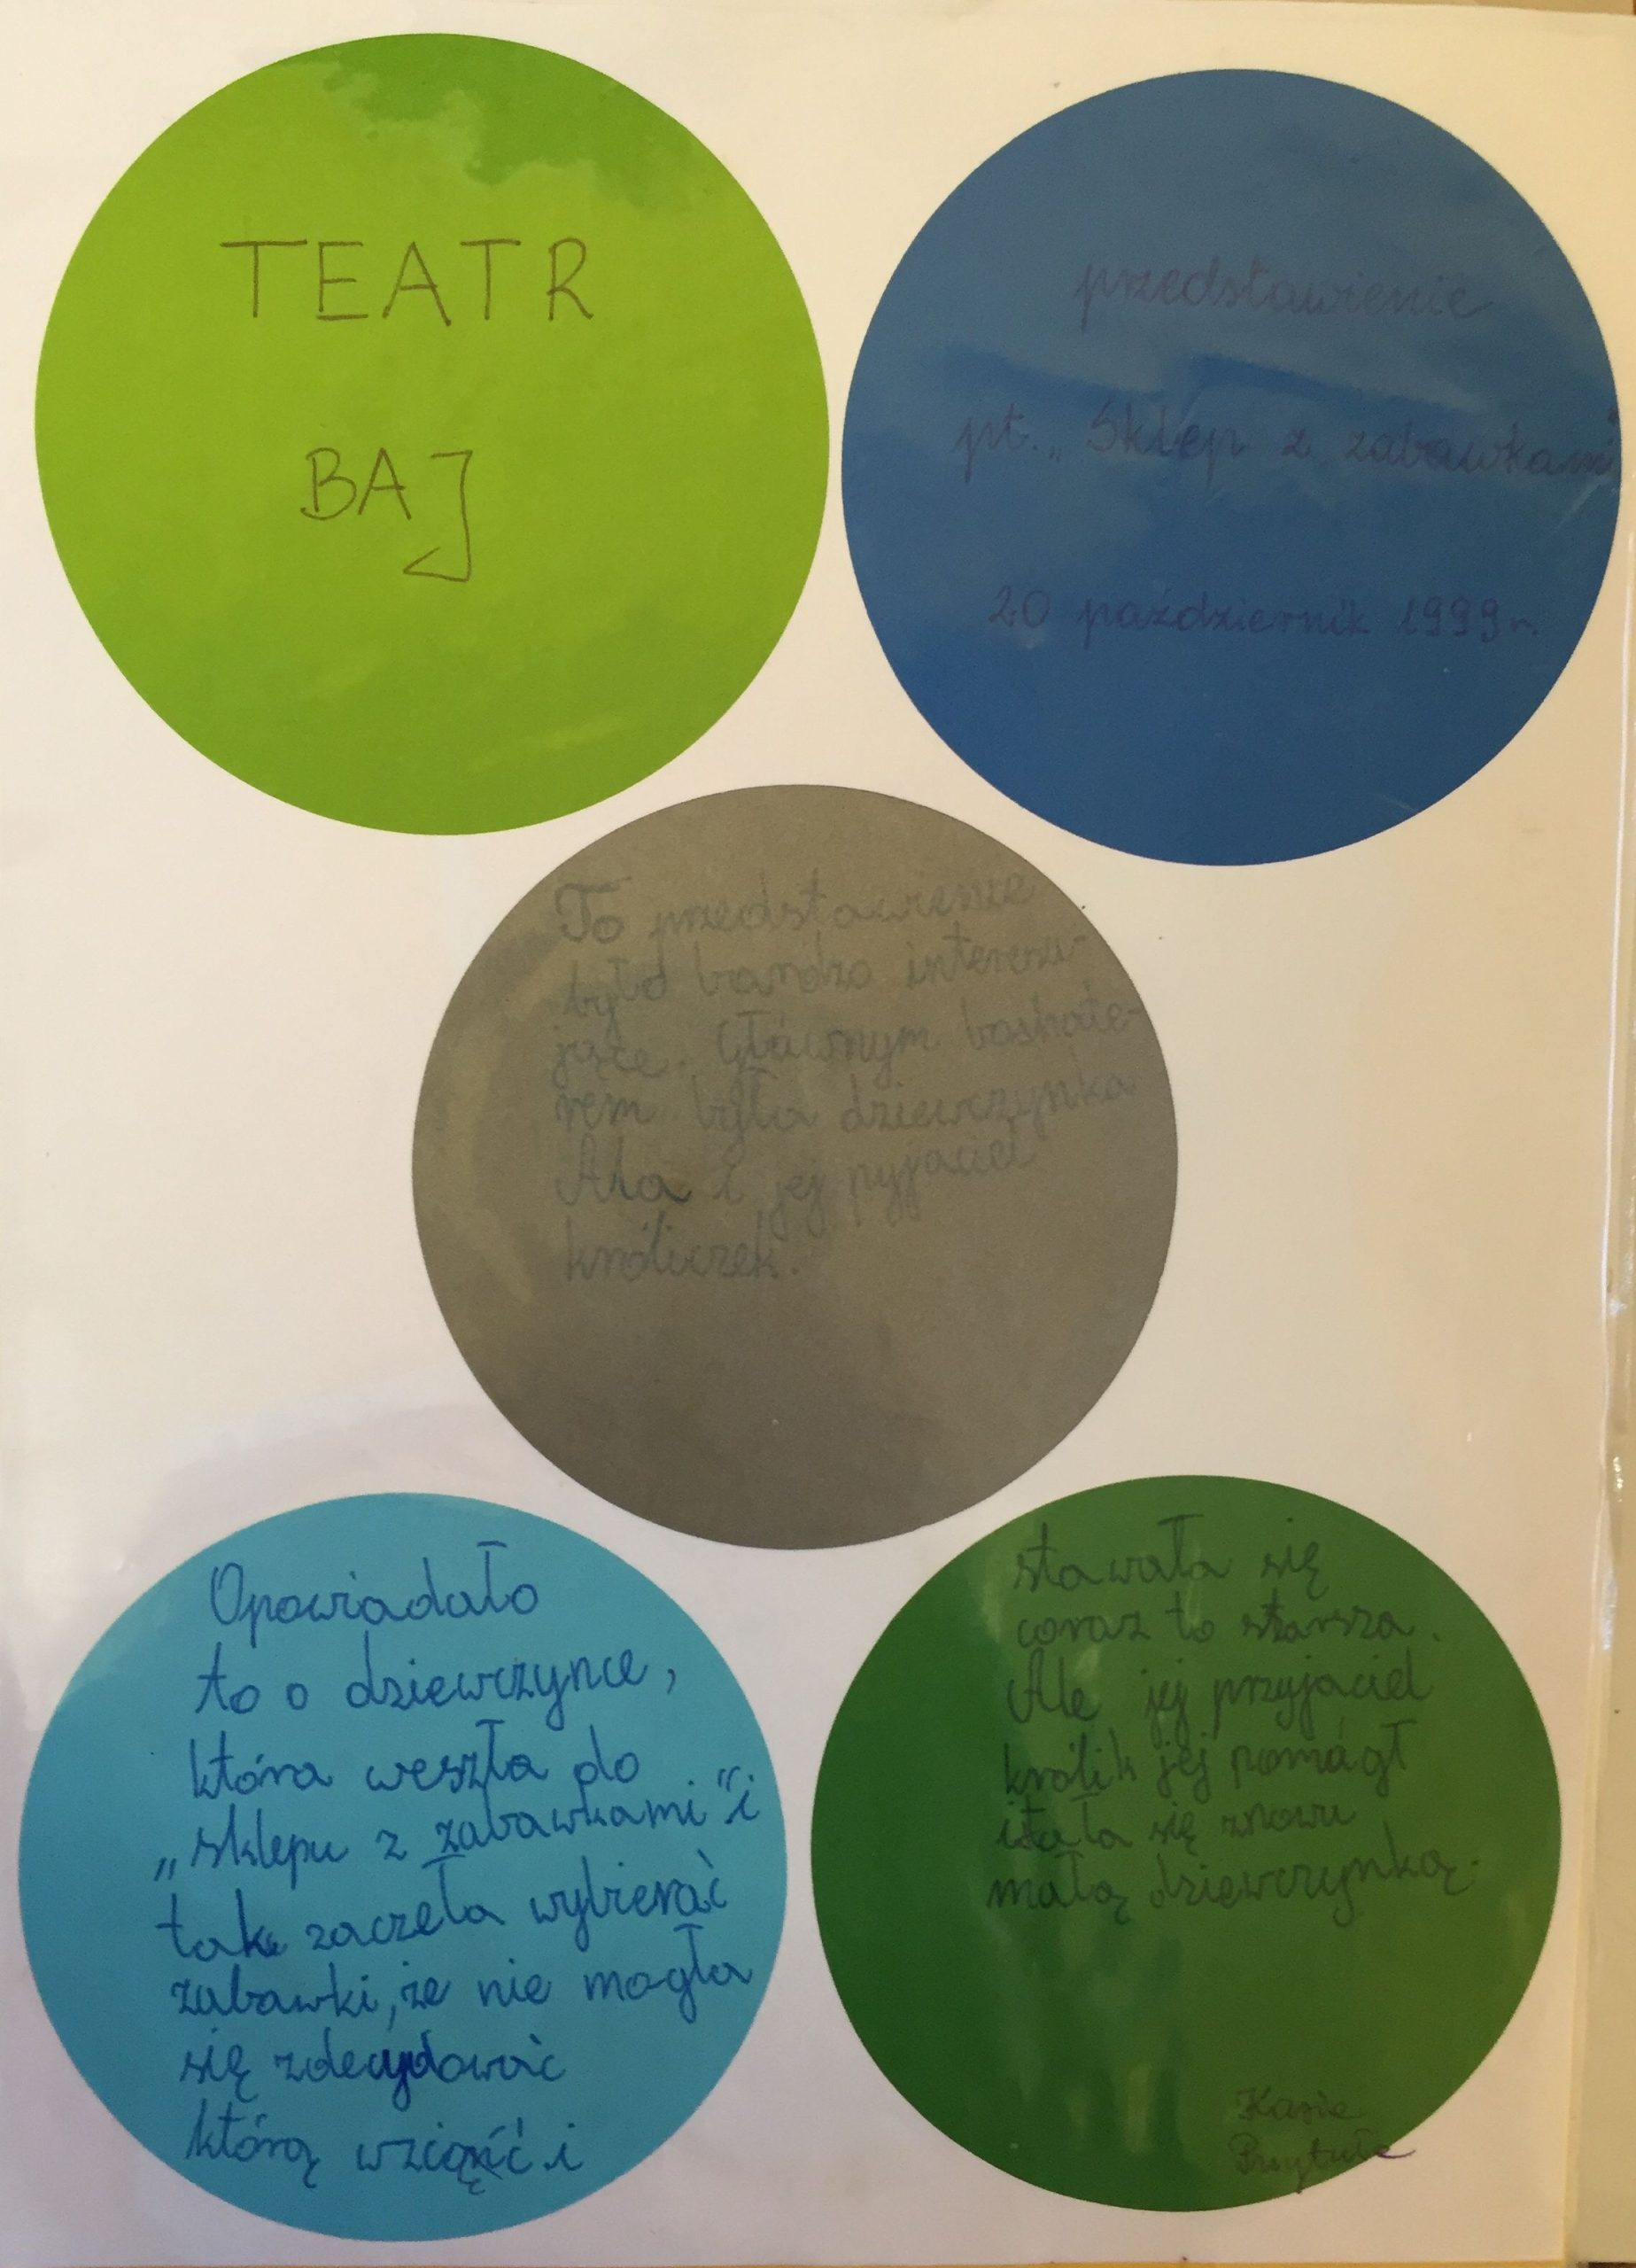 TEATR
BAJ
przedstawienie
pt. „Sklep z zabawkami"
20 październik 1999r.
To przedstawienie
było bardzo interesu-
jące. Głównym boshate-
rem była dziewczynka
Ala i jej pyjaciel
króliczek.
Opowiadało
to o dziewczynce,
która weszła do
„sklepu z zabawkami" i
tak zaczeła wybierać
zabawki, że nie mogła
się zdecydować
którą wziąść i
stawała się
coraz to starsza.
Ale jej przyjaciel
królik jej pomógł
i stała się znowu
małą dziewczynką.
Kasia